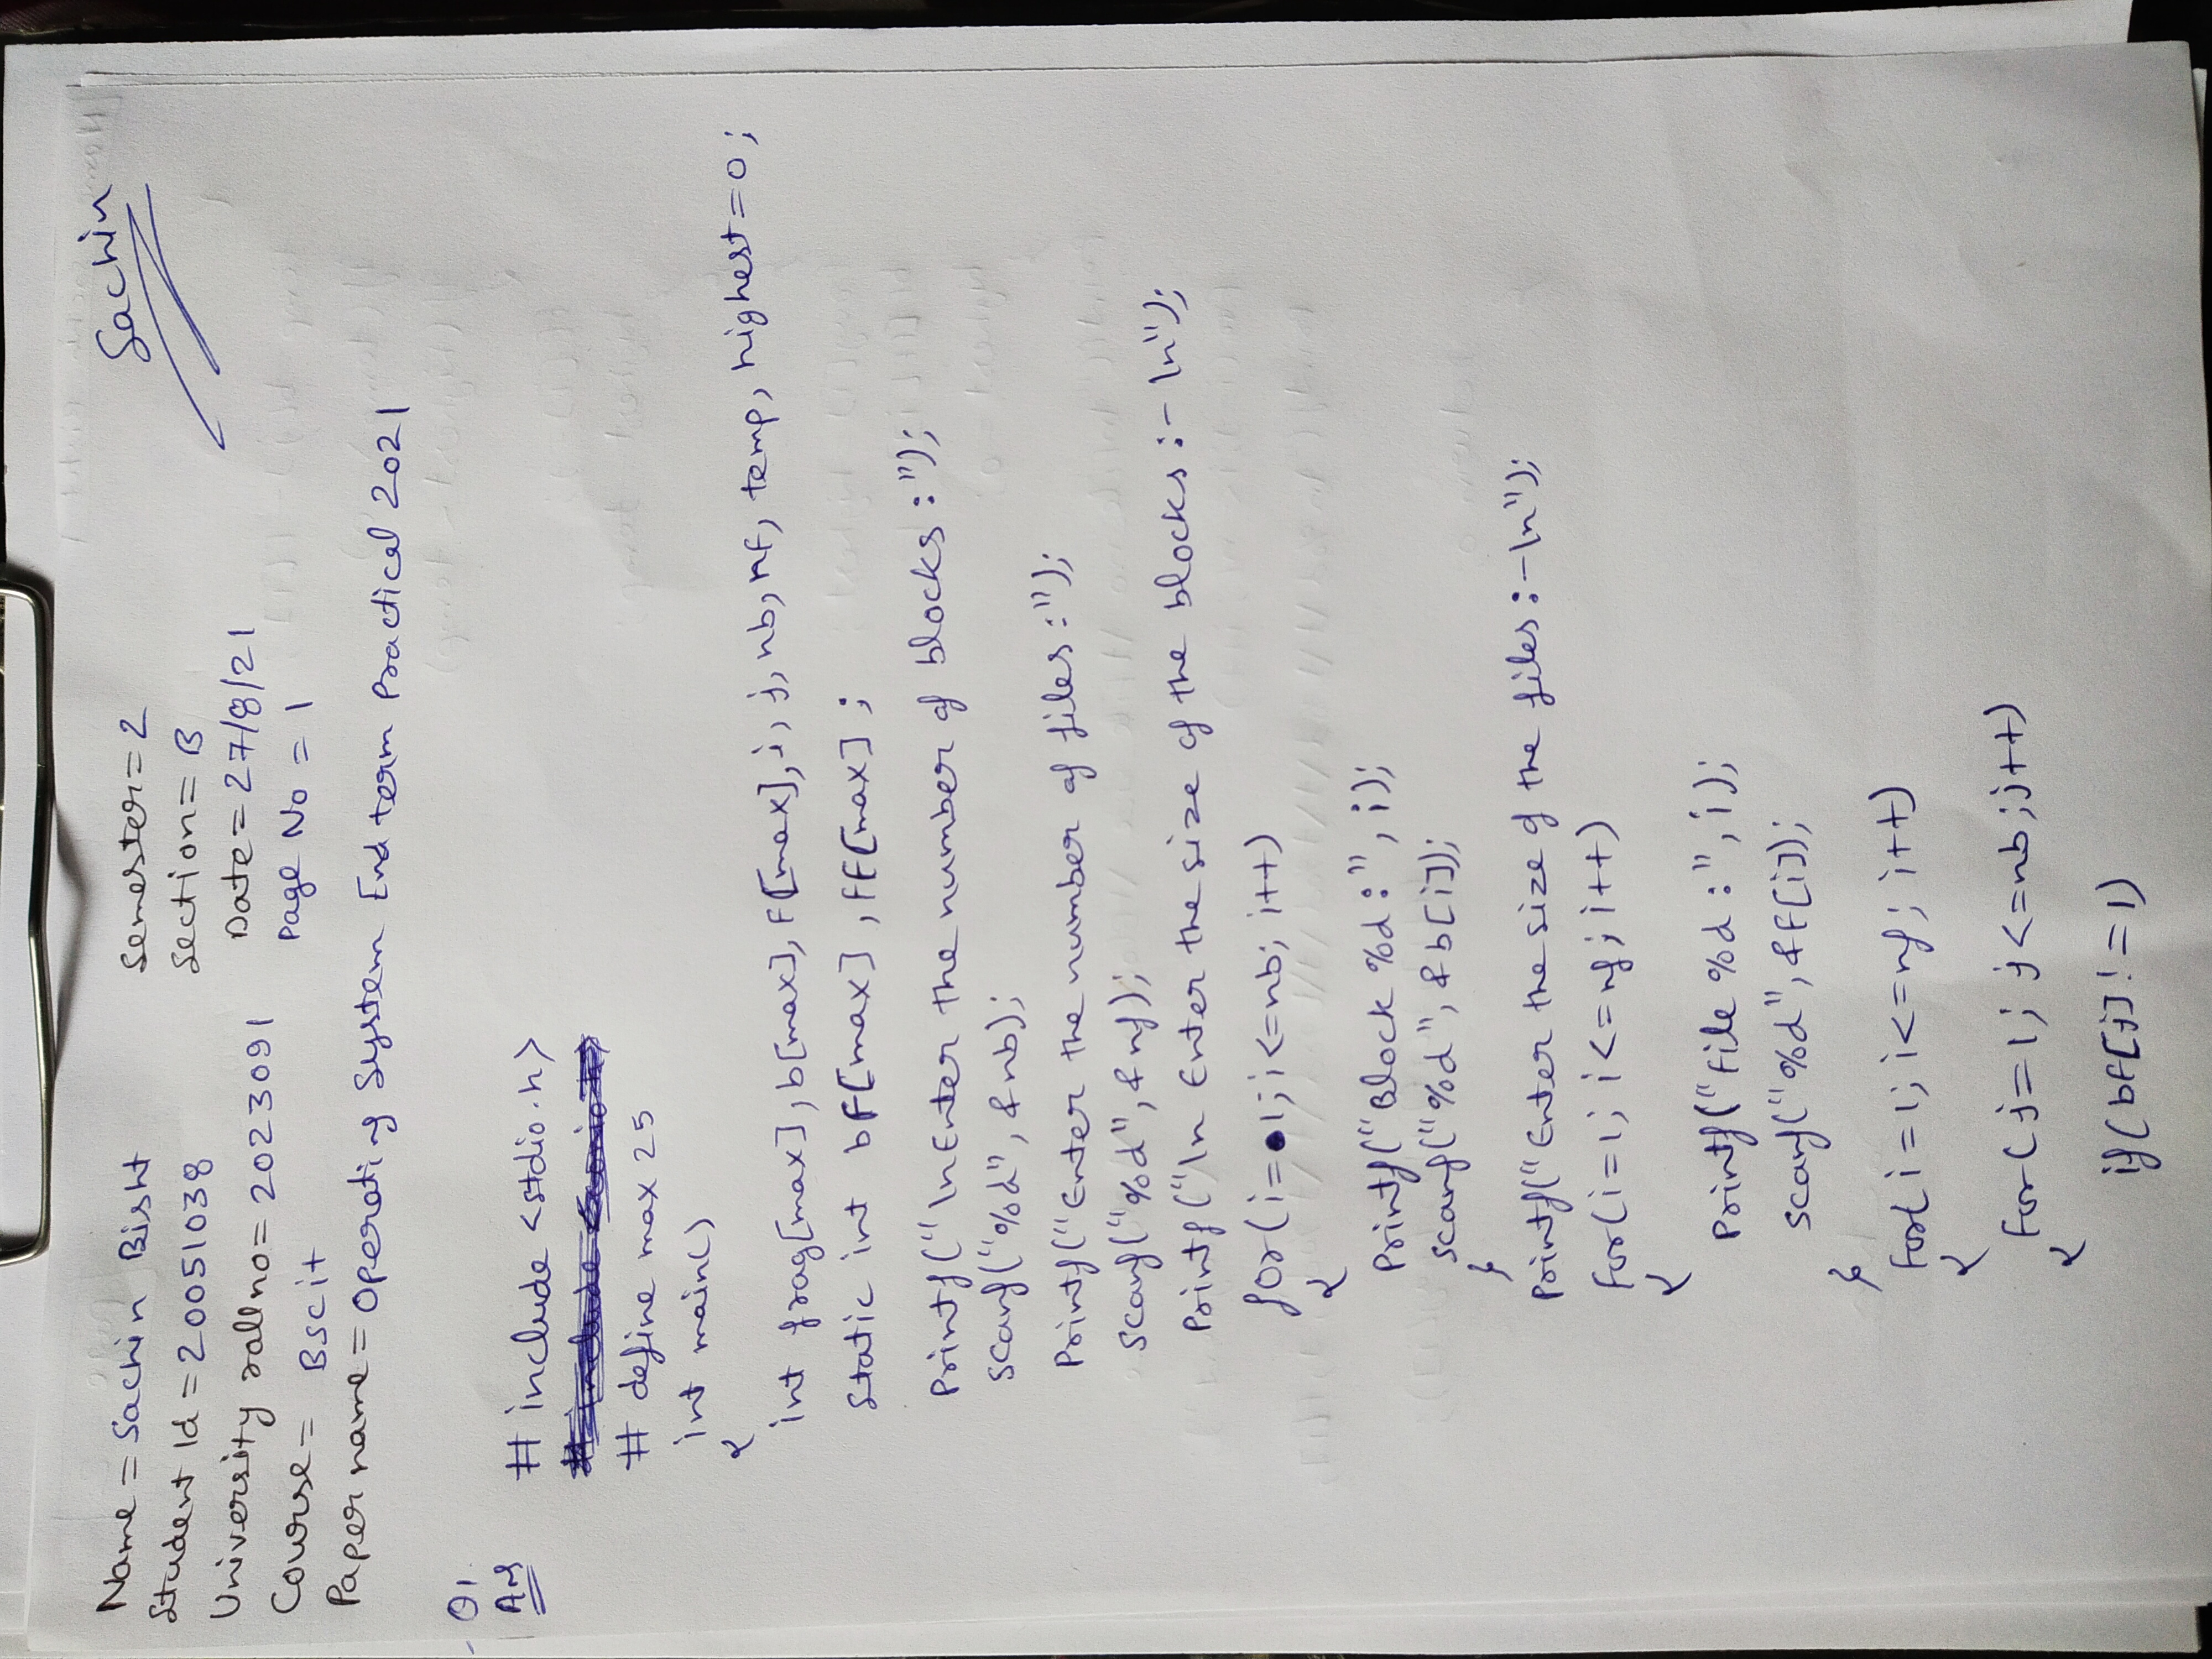 Name = Sachin Bisht
Semester = 2
Sachin
Student Id = 20051038
Section = B
University rollno = 2023091
Date = 27/8/21
Course = Bscit
Page No = 1
Paper name = Operating System End term Practical 2021
Q1.
Ans
# include <stdio.h>
# define max 25
int main()
{
int frag[max], b[max], f[max], i, j, nb, nf, temp, highest=0;
static int bf[max], ff[max];
Printf("\nEnter the number of blocks :");
scanf("%d", &nb);
Printf("Enter the number of files :");
scanf("%d", &nf);
Printf("\n Enter the size of the blocks :- \n");
for(i=1; i<=nb; i++)
{
Printf("Block %d :", i);
scanf("%d", &b[i]);
}
Printf("Enter the size of the files :-\n");
for(i=1; i<=nf; i++)
{
Printf("File %d :", i);
scanf("%d", &f[i]);
}
for(i=1; i<=nf; i++)
{
for(j=1; j<=nb; j++)
{
if(bf[j]!=1)